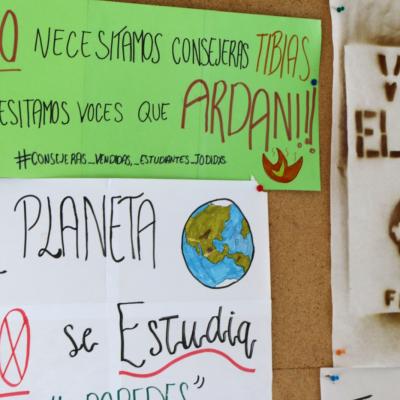 O NECESITAMOS CONSEJERAS TIBIAS
ESITAMOS VOCES QUE ARDAN!!
#CONSEJERAS_VENDIDAS,_ESTUDIANTES_JODIDXS
PLANETA
O se Estudia
PAREDES"
V
EL
F